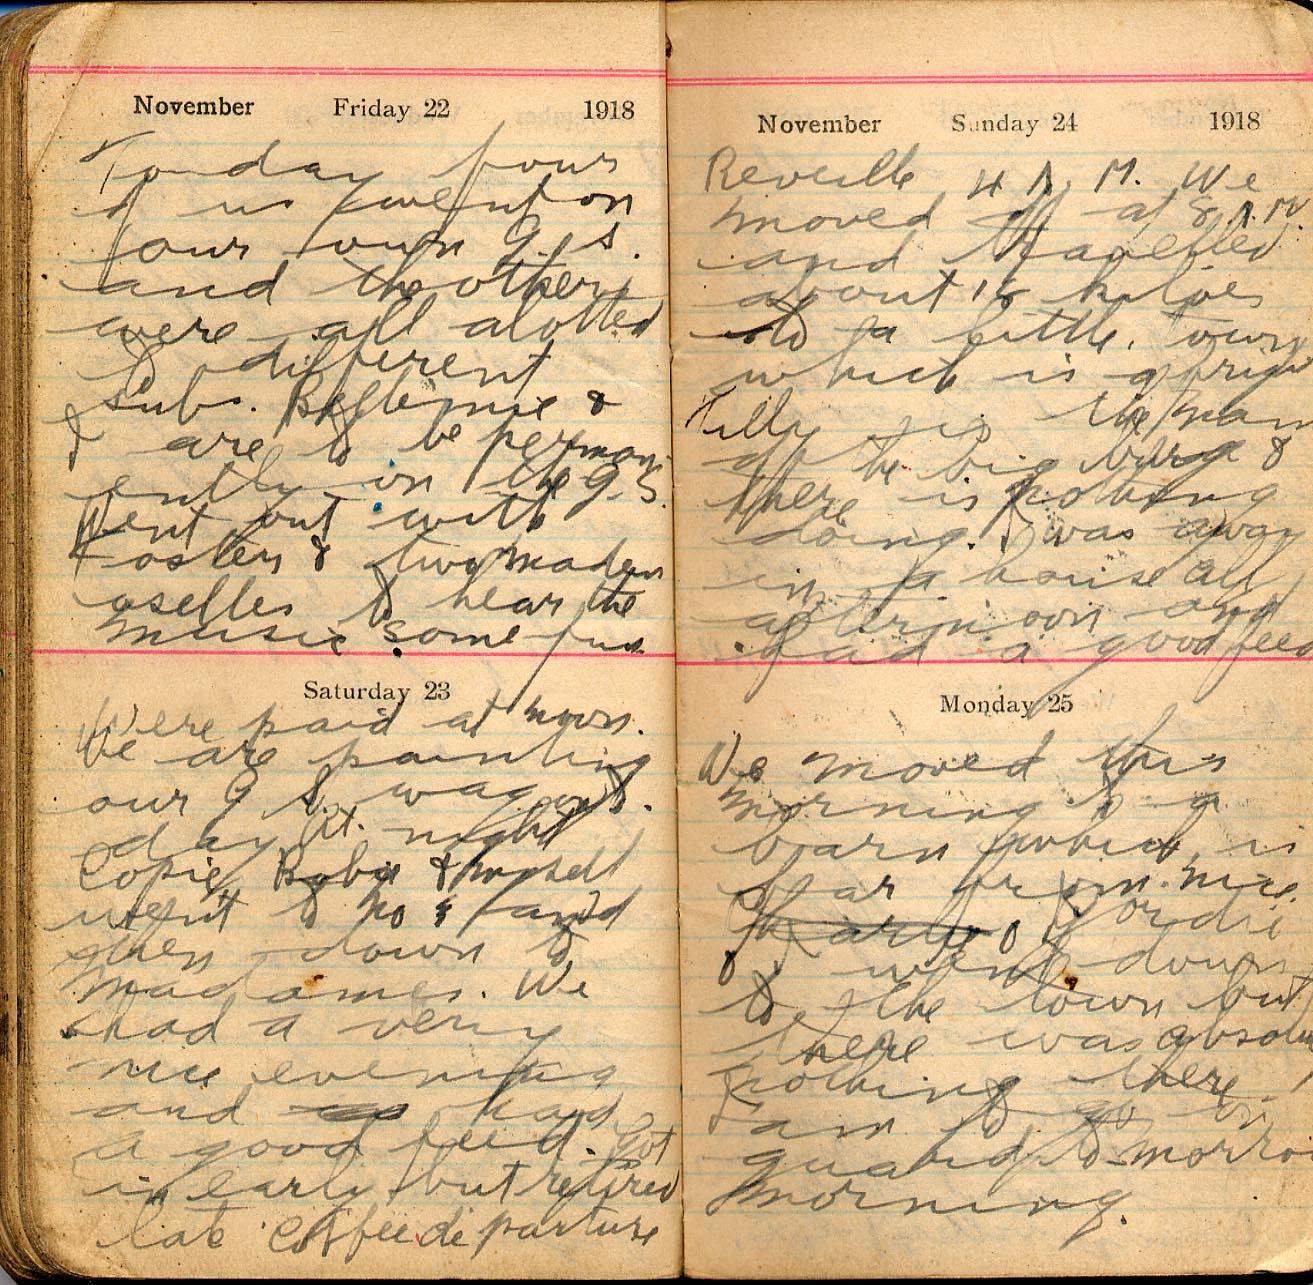 November Friday 22 1918
To-day four
of us went on
our own G.S.
and the others
were all alotted
to different
subs. &
I are to be perman-
ently on the G.S.
Went out with
Foster & two madem
oselles to hear the
music some fun
Saturday 23
Were paid at noon.
We are painting
our G S wagon to.
day. At night
& myself
went to No 4 and
then down to
Madames. We
had a very
nice evening
and had
a good feed. Got
in early but retired
late. departure
November Sunday 24 1918
Reveille 4 A. M. We
moved off at 8 A.M.
and travelled
about 18
to a little town
which is
Tilly is the name
of the &
there is nothing
doing. I was away
in a house all
afternoon and
had a good feed
Monday 25
We moved this
morning to a
barn which is
far from nice.
Gordie
& I went down
to the town but
there was absolu
nothing there. I
am to go on
guard to-morrow
morning.